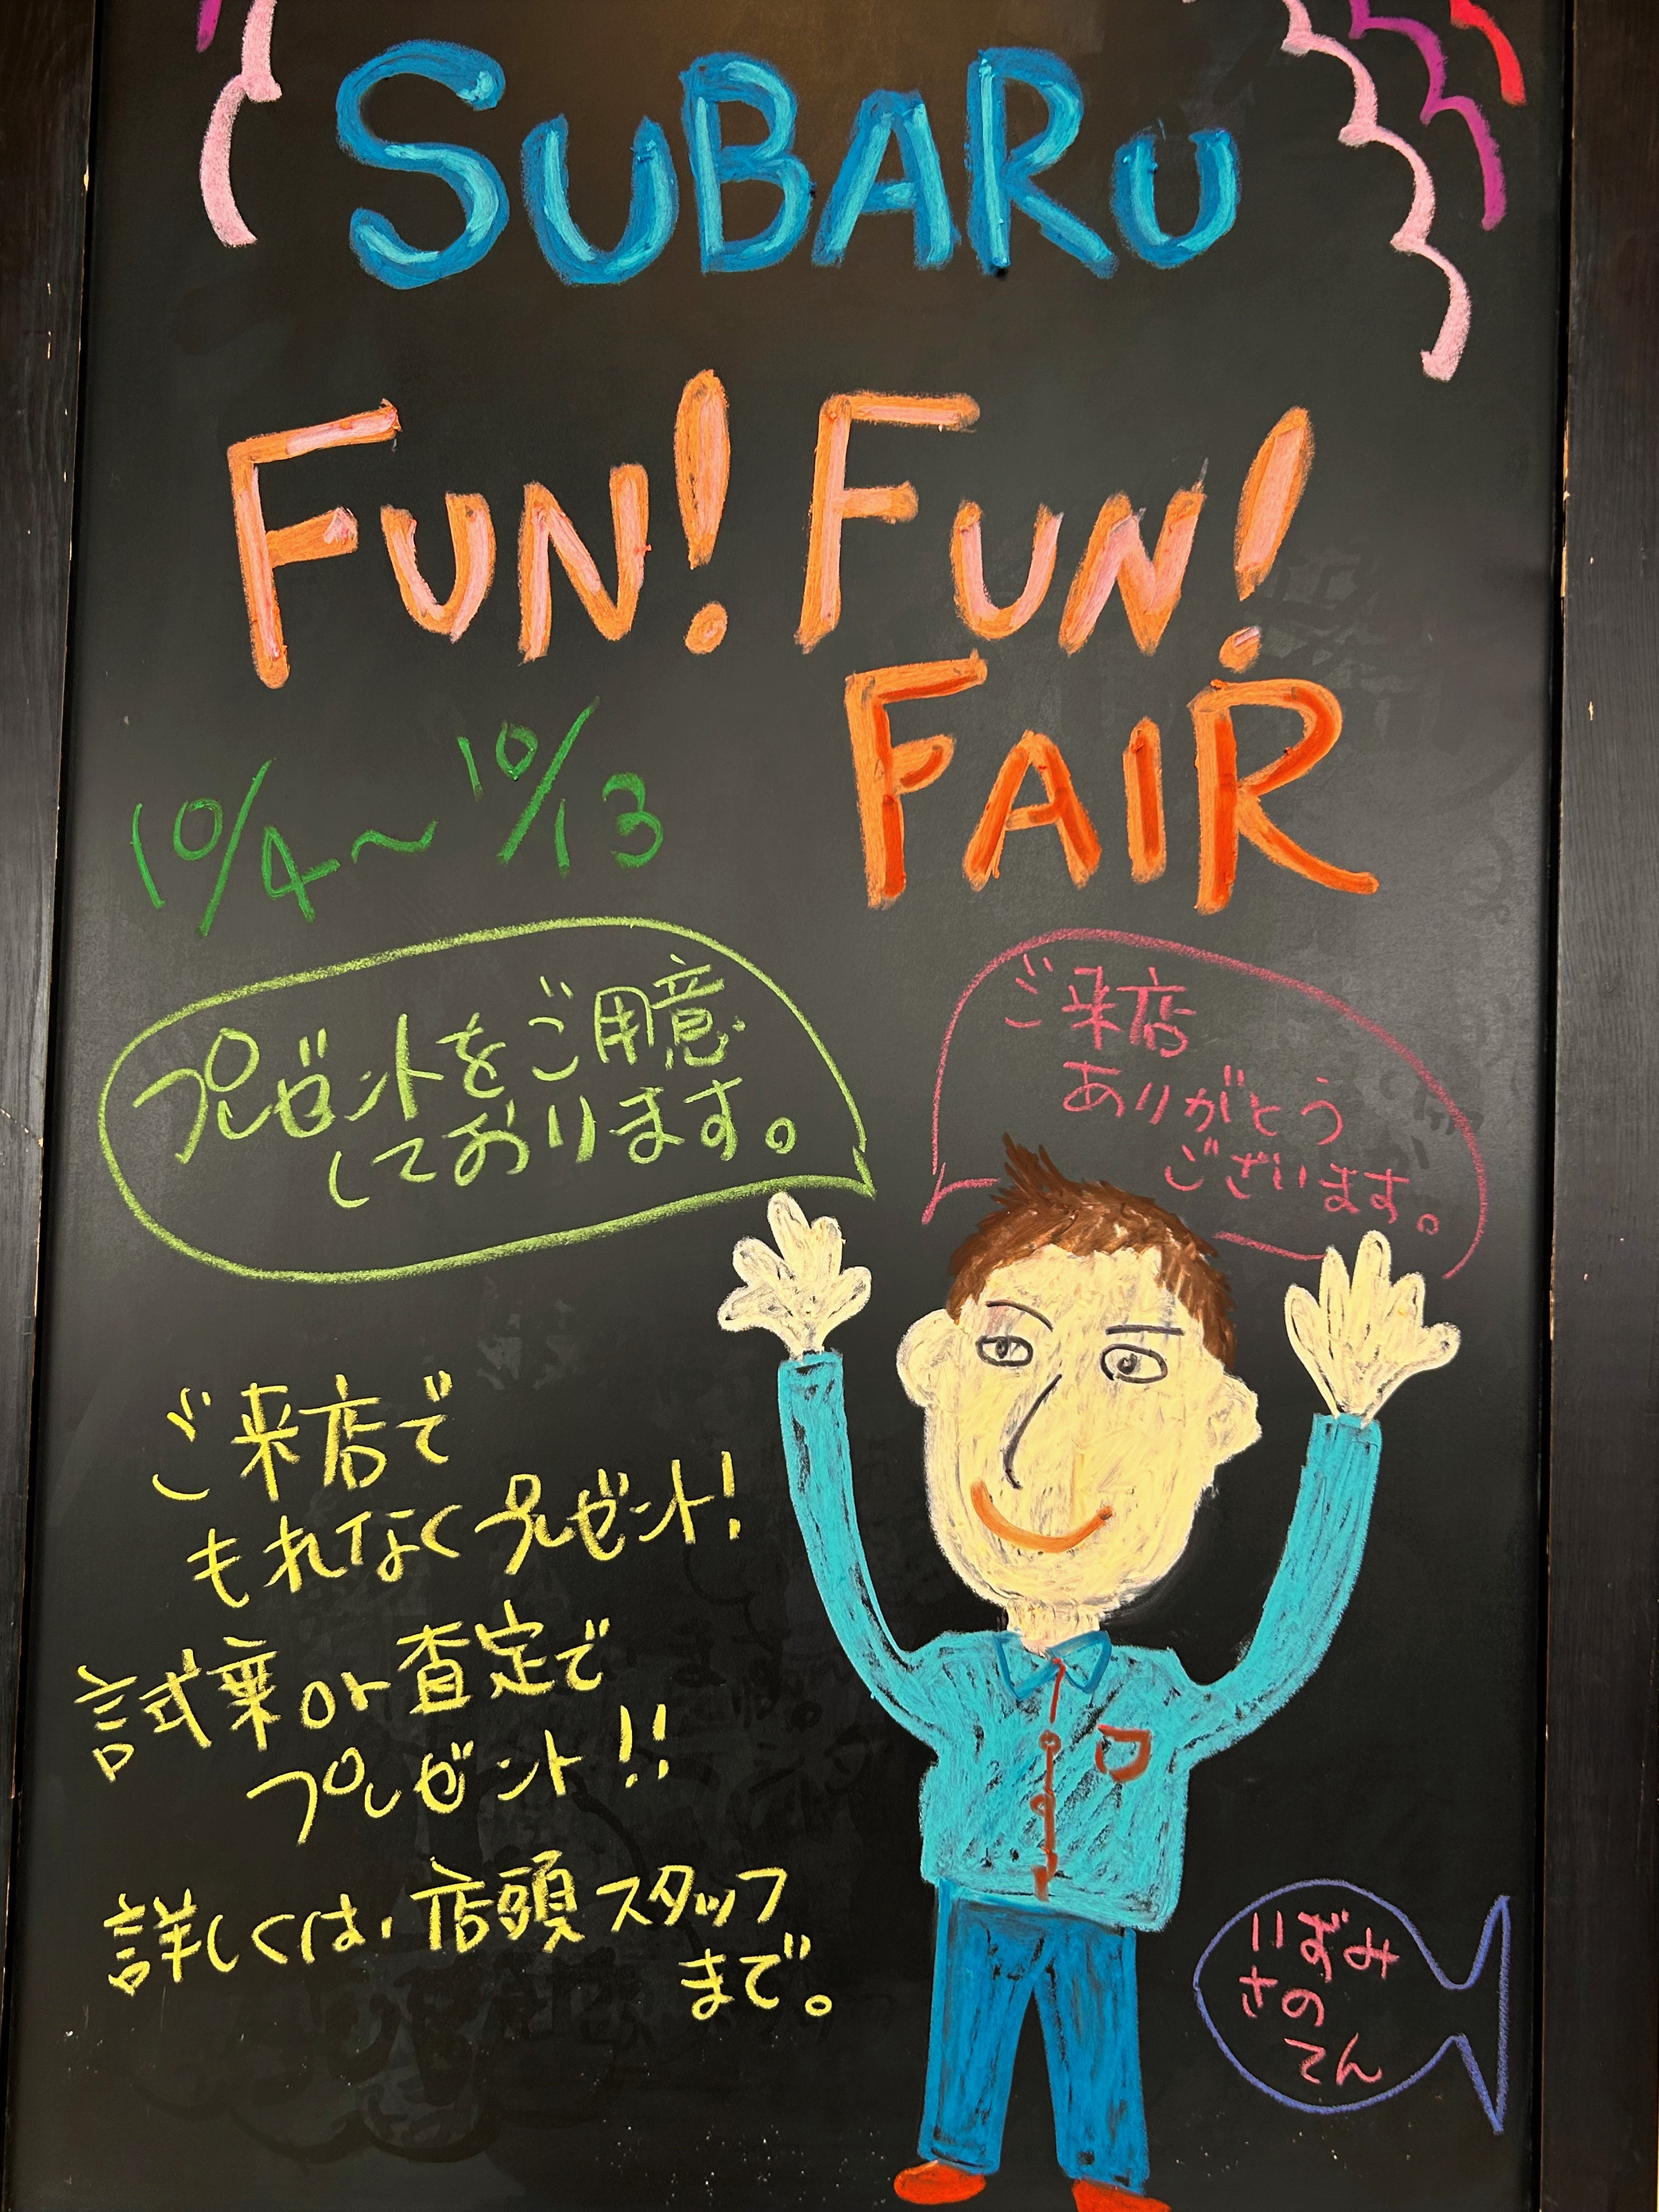 SUBARU
FUN! FUN!
FAIR
10/4~10/13
プレゼントをご用意
しております。
ご来店
ありがとう
ございます。
ご来店で
もれなくプレゼント!
試乗or査定で
プレゼント!!
詳しくは、店頭スタッフ
まで。
いずみ
さの
てん